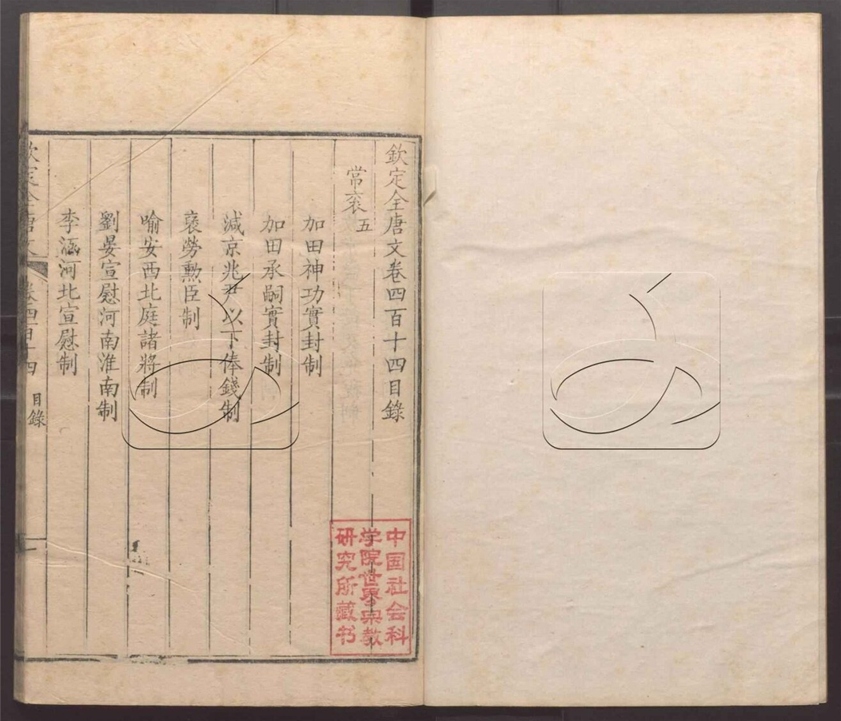 欽定全唐文卷四百十四目錄
常袞五
加田神功實封制
加田承嗣實封制
減京兆尹以下俸錢制
褒勞勲臣制
喻安西北庭諸將制
劉晏宣慰河南淮南制
李涵河北宣慰制
欽定全唐文 卷四百十四 目錄 一
中国社会科
学院世界宗教
研究所藏书